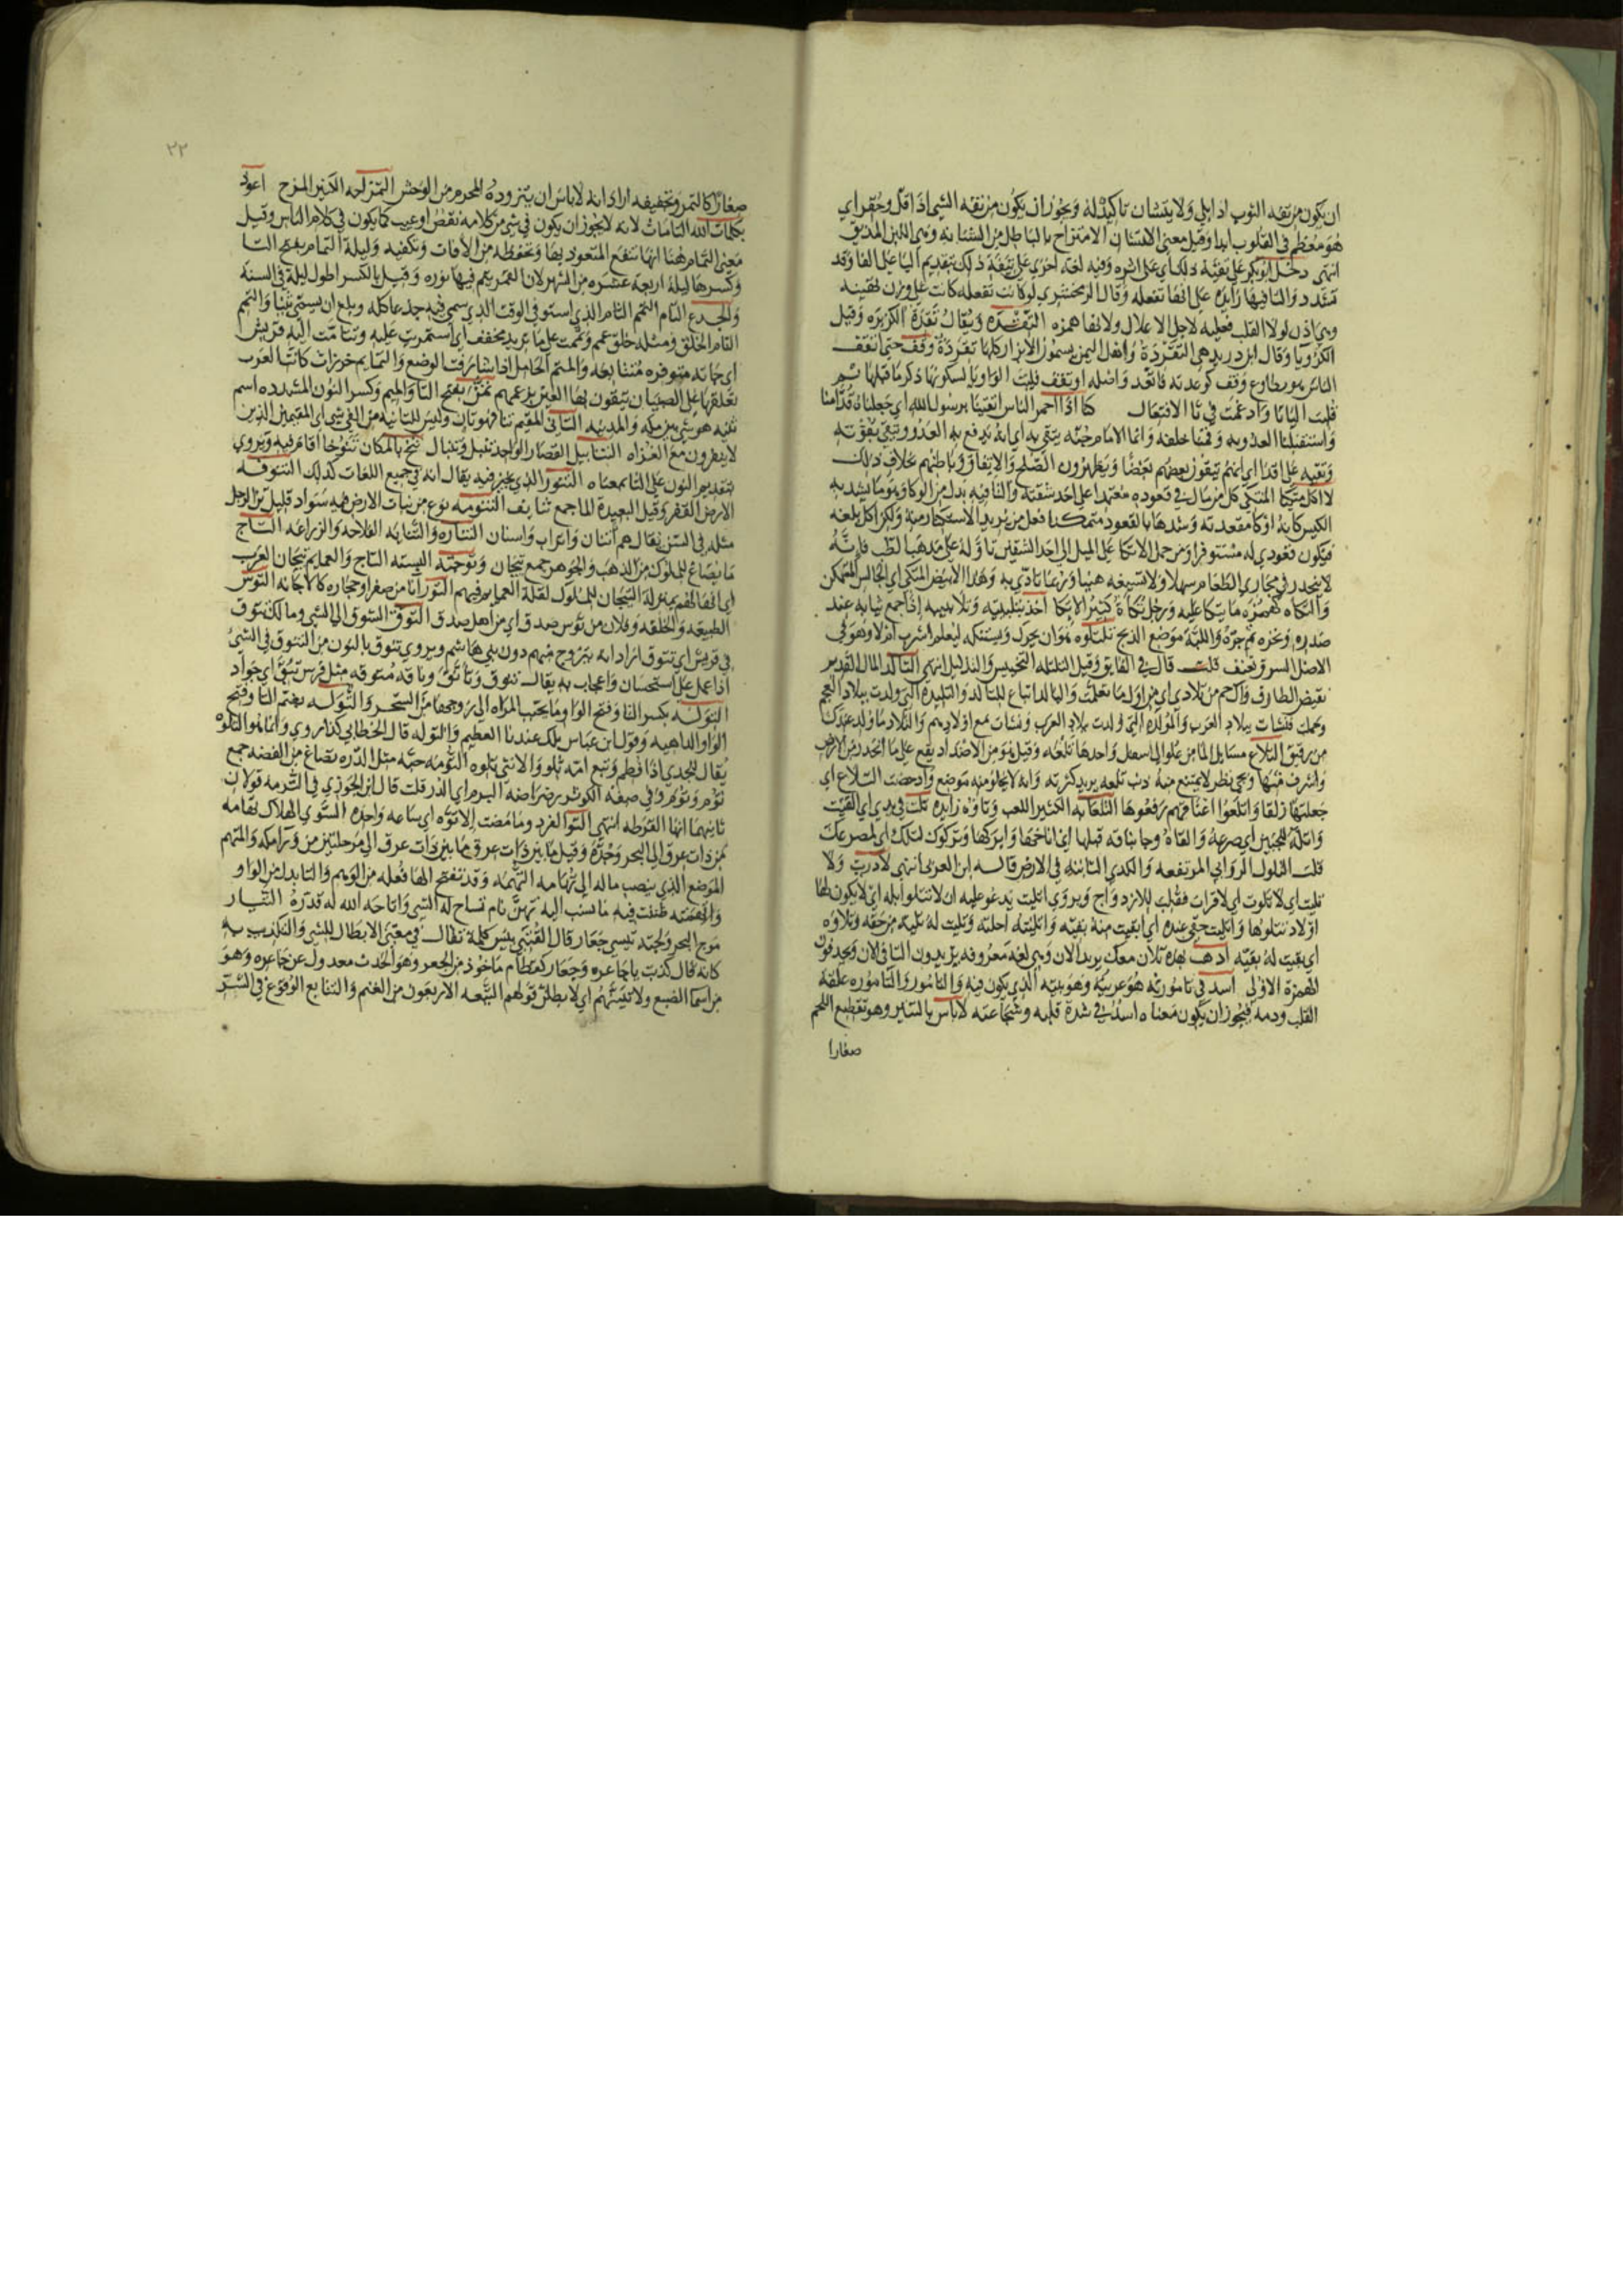 ان يكون من تفه الثوب اذا بلي ولا يتشان تاكيد له ويجوز ان يكون من تفه الشي اذا قل وحقر اي
هو معظم في القلوب ابدا وقيل معنى الامتزاج بالباطل من الشنانة وهي اللبن المذيق
انتهى دخل ابو بكر على تفئة ذلك اي على اثره وفيه لغة اخرى على تئيفة ذلك بتقديم اليا على الفا وقد
تشدد والتا فيها زايدة على انها تفعلة وقال الزمخشري لو كانت تفعلة كانت على وزن تهنية
وهي اذن لولا القلب فعيلة لاجل الاعلال ولامها همزة التقدة ويقال تقدة الكزبرة وقيل
الكرويا وقال ابن دريد هي التقردة واهل اليمن يسمون الابزار كلها تقردة وقف حتى اتقف
الناس هو مطاوع وقف كوعدته فاتعد واصله اوتقف قلبت الواو يا لسكونها وكسر ما قبلها ثم
قلبت اليا تا وادغمت في تا الافتعال كنا اذا احمر الباس اتقينا برسول الله اي جعلناه قدامنا
واستقبلنا العدو به وقمنا خلفه وانما الامام جنة يتقى به اي انه يدفع به العدو ويتقى بقوته
وتقية على اقذا اي انهم يتقون بعضهم بعضا ويظهرون الصلح والاتفاق وباطنهم بخلاف ذلك
لا اكل متكيا المتكي كل من مال في قعوده معتمدا على احد شقيه والتا فيه بدل من الواو
الكيس كانه اوكا مقعدته وشدها بالقعود متمكنا فعل من يريد الاستكثار منه ولكن اكل بلغة
فيكون قعودي له مستوفزا ومن حمل الاتكا على الميل الى احد الشقين تاوله على مذهب الطب فانه
لا ينحدر في مجاري الطعام سهلا ولا يسيغه هنيا وربما تاذى به وهذا الابيض المتكي اي الجالس المتمكن
والتكاة كهمزة ما يتكا عليه ورجل تكاة كثير الاتكا اخذ بتلبيبه وتلابيبه اذا جمع ثيابه عند
صدره ونحره ثم جره واللبة موضع الذبح تلتلوه هو ان يحرك ويستنكه ليعلم اشرب ام لا وهو في
الاصل السوق بعنف قلت قال في الفايق وقيل التلتلة
نقيض الطارف وال حم من تلادي اي من اول ما تعلمت والبالد اتباع للتالد والتليدة التي ولدت ببلاد العجم
وحملت فنشات ببلاد العرب والمولدة التي ولدت ببلاد العرب ونشات مع اولادهم والتلاد ما ولد عندك
التلاع مسايل الما من علو الى اسفل واحدها تلعة وقيل هو من الاضداد يقع على ما انحدر من الارض
واشرف منها ويجي مطر لا يمتنع منه ذنب تلعة يريد كثرته وانه لا يخلو منه موضع وادحضت التلاع اي
جعلتها زلقا واتلعوا اعناقهم رفعوها التلعابة الكثير اللعب وتاوه زايدة تلت في يدي اي القيت
وتله للجبين اي صرعه والقاه وجا بناقة فتلها اي اناخها وابركها وتركوك لمتلك اي لمصرعك
قلت التلول الروابي المرتفعة والكدي الثابتة في الارض قاله ابن العربي انتهى لا دريت ولا
تليت اي لا تلوت اي لا قرات فقلبت للازدواج ويروى اتليت يدعو عليه ان لا تتلو ابله اي لا يكون لها
اولاد تتلوها واتليت حقي عنده اي ابقيت منه بقية واتليته احلته وتليت له تلية من حقه وتلاوة
اي بقيت له بقية اذهب بهذه تلان معك يريد الان وهي لغة معروفة يزيدون التا في الان ويحذفون
الهمزة الاولى اسد في تامورته هو عرينه وهو بيته الذي يكون فيه والتامور والتامورة علقة
القلب ودمه فيجوز ان يكون معناه اسد في شدة قلبه وشجاعته لا باس بالتتمير وهو تقطيع اللحم
صغارا
٢٢
صغارا كالتمر وتجفيفه اراد انه لا باس ان يتزوده المحرم من الوحش التمزلجه اعوذ
بكلمات الله التامات لانه لا يجوز ان يكون في شي من كلامه نقص او عيب كما يكون في كلام الناس وقيل
معنى التمام هنا انها تنفع المتعوذ بها وتحفظه من الافات وتكفيه وليلة التمام بفتح التا
وكسرها ليلة اربعة عشرة من الشهر لان القمر يتم فيها نوره وقيل بالكسر اطول ليلة في السنة
والجذع التام التمم التام الذي استوفى الوقت الذي يسمى فيه جذعا كله وبلغ ان يسمى ثنيا والتمم
التام الخلق ومثله خلق عمم وتممت على ما تريد مخفف اي استمررت عليه وتتامت اليه قريش
اي جاته متوفرة متتابعة والمتم الحامل اذا شارفت الوضع والتمايم خرزات كانت العرب
تعلقها على الصبيان يتقون بها العين بزعمهم تمن بفتح التا والميم وكسر النون المشددة اسم
ثنية هرشى بين مكة والمدينة التاني المقيم تنا فهو تان وليس للتانية من الفي شي اي المقيمين الذين
لا ينفرون مع الغزاة التنابيل القصار الواحد تنبل وتنبال تنخ بالمكان تنوخا اقام فيه ويروى
بتقديم النون على التا بمعناه التنور الذي يخبز فيه يقال انه في جميع اللغات كذلك التنوفة
الارض القفر وقيل البعيدة الما جمع تنايف التنومة نوع من نبات الارض فيه سواد قليل تن الرجل
مثله في السن يقال هم اتنان واتراب واسنان التناية الفلاحة والزراعة التاج
ما يصاغ للملوك من الذهب والجوهر جمع تيجان وتوجته البسته التاج والعمايم تيجان العرب
اي انها لهم بمنزلة التيجان للملوك لقلة العمايم فيهم التور انا من صفر او حجارة كالاجانة التوس
الطبيعة والخلقة وفلان من توس صدق اي من اهل صدق التوق الشوق الى الشي ومالك تتوق
في قريش اي تتوق اراد انه يتزوج منهم دون بني هاشم ويروى تنوق بالنون من التنوق في الشي
اذا عمل على استحسان واعجاب به يقال تنوق وتانق وناقة متوقة مثل فرس تيق اي جواد
التولة بكسر التا وفتح الواو ما يحبب المراة الى زوجها من السحر والتولة بضم التا وفتح
الواو الداهية وقول ابن عباس تلك عندنا العطيم والتولة قال الخطابي كذا روي وانما هو التلوة
يقال للجدي اذا فطم وتبع امه تلو والانثى تلوة التومة حبة مثل الدرة تصاغ من الفضة جمع
توم وتوم وفي صفة الكوثر رضراضه التوم اي الدر قلت قال ابن الجوزي في التومة قولان
ثانيهما انها القرطة انتهى التو الفرد وما مضت الا توة اي ساعة واحدة التوى الهلاك تهامة
من ذات عرق الى البحر وجدة وقيل ما بين ذات عرق الى مرحلتين من ورا مكة والمتهم
الموضع الذي ينصب ماله الى تهامة التهمة وقد تفتح الها فعلة من الوهم والتا بدل من الواو
واتهمته ظننت فيه ما نسب اليه تهن نام تاح له الشي واتاحه الله له قدره التيار
موج البحر ولجته تيسي جعار قال القتيبي تيس كلمة تقال في معنى الابطال للشي والتكذيب به
كانه قال كذبت يا جاعرة وجعار كقطام ماخوذ من الجعر وهو الحدث معدول عن جاعرة وهو
من اسما الضبع ولاتيسنهم اي لابطلن قولهم التيعة الاربعون من الغنم والتتايع الوقوع في الشر